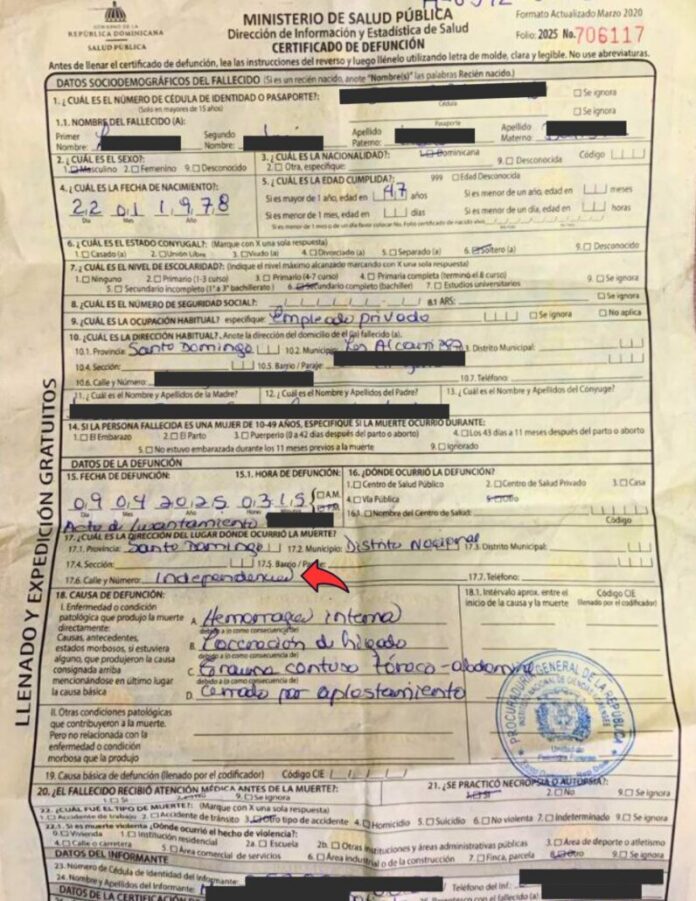 GOBIERNO DE LA
REPÚBLICA DOMINICANA
SALUD PÚBLICA
MINISTERIO DE SALUD PÚBLICA
Dirección de Información y Estadística de Salud
CERTIFICADO DE DEFUNCIÓN
Formato Actualizado Marzo 2020
Folio: 2025 No. 706117
Antes de llenar el certificado de defunción, lea las instrucciones del reverso y luego llénelo utilizando letra de molde, clara y legible. No use abreviaturas.
LLENADO Y EXPEDICIÓN GRATUITOS
DATOS SOCIODEMOGRÁFICOS DEL FALLECIDO (Si es un recién nacido, anote "Nombre(s)" las palabras Recién nacido).
1. ¿CUÁL ES EL NÚMERO DE CÉDULA DE IDENTIDAD O PASAPORTE?:
(Solo en mayores de 15 años) Cédula Se ignora
Pasaporte Se ignora
1.1. NOMBRE DEL FALLECIDO (A):
Primer Nombre: Segundo Nombre: Apellido Paterno: Apellido Materno:
2. ¿CUÁL ES EL SEXO?: 3. ¿CUÁL ES LA NACIONALIDAD?: 1. Dominicana Código
1. Masculino 2. Femenino 9. Desconocido 2. Otra, especifique: 9. Desconocida
4. ¿CUÁL ES LA FECHA DE NACIMIENTO? 5. ¿CUÁL ES LA EDAD CUMPLIDA? 999 Edad Desconocida
22 01 1978 Si es mayor de 1 año, edad en 47 años Si es menor de un año, edad en meses
Día Mes Año Si es menor de 1 mes, edad en días Si es menor de un día, edad en horas
6. ¿CUÁL ES EL ESTADO CONYUGAL?: (Marque con X una sola respuesta)
1. Casado (a) 2. Unión Libre 3. Viudo (a) 4. Divorciado (a) 5. Separado (a) 6. Soltero (a) 9. Desconocido
7. ¿CUÁL ES EL NIVEL DE ESCOLARIDAD?: (Indique el nivel máximo alcanzado marcando con X una sola respuesta)
1. Ninguno 2. Primario (1-3 curso) 3. Primario (4-7 curso) 4. Primaria completa (terminó el 8 curso) 9. Se ignora
5. Secundario incompleto (1° a 3° bachillerato) 6. Secundario completo (bachiller) 7. Estudios universitarios
8. ¿CUÁL ES EL NÚMERO DE SEGURIDAD SOCIAL?: 8.1 ARS: Se ignora
9. ¿CUÁL ES LA OCUPACIÓN HABITUAL? especifique: Empleado privado Se ignora No aplica
10. ¿CUÁL ES LA DIRECCIÓN HABITUAL?. Anote la dirección del domicilio de el (la) fallecido (a).
10.1. Provincia: Santo Domingo 10.2. Municipio: Los Alcarrizos 10.3. Distrito Municipal:
10.4. Sección: 10.5. Barrio / Paraje:
10.6. Calle y Número: 10.7. Teléfono:
11. ¿Cuál es el Nombre y Apellidos de la Madre? 12. ¿Cuál es el Nombre y Apellidos del Padre? 13. ¿Cuál es el Nombre y Apellidos del Cónyuge?
14. SI LA PERSONA FALLECIDA ES UNA MUJER DE 10-49 AÑOS, ESPECIFIQUE SI LA MUERTE OCURRIÓ DURANTE:
1. El Embarazo 2. El Parto 3. Puerperio (0 a 42 días después del parto o aborto) 4. Los 43 días a 11 meses después del parto o aborto
5. No estuvo embarazada durante los 11 meses previos a la muerte 9. Ignorado
DATOS DE LA DEFUNCIÓN
15. FECHA DE DEFUNCIÓN: 15.1. HORA DE DEFUNCIÓN: 16. ¿DÓNDE OCURRIÓ LA DEFUNCIÓN?
1. Centro de Salud Público 2. Centro de Salud Privado 3. Casa
09 04 2025 03 15 A.M. 4. Vía Pública 5. Otro
Día Mes Año P.M. 16.1. Nombre del Centro de Salud:
Acta de Levantamiento Código
17. ¿CUÁL ES LA DIRECCIÓN DEL LUGAR DÓNDE OCURRIÓ LA MUERTE?
17.1. Provincia: Santo Domingo 17.2. Municipio: Distrito Nacional 17.3. Distrito Municipal:
17.4. Sección: 17.5. Barrio / Paraje:
17.6. Calle y Número: Independencia 17.7. Teléfono:
18. CAUSA DE DEFUNCIÓN: 18.1. Intérvalo aprox. entre el inicio de la causa y la muerte Código CIE (llenado por el codificador)
I. Enfermedad o condición patológica que produjo la muerte directamente:
Causas, antecedentes, estados morbosos, si estuviera alguno, que produjeron la causa consignada arriba mencionándose en último lugar la causa básica
A. Hemorragia interna
debido a (o como consecuencia de)
B. Laceración de hígado
debido a (o como consecuencia de)
C. Trauma contuso tóraco-abdominal
debido a (o como consecuencia de)
D. Cerrado por aplastamiento
II. Otras condiciones patológicas que contribuyeron a la muerte. Pero no relacionada con la enfermedad o condición morbosa que la produjo
PROCURADURÍA GENERAL DE LA REPÚBLICA
INSTITUTO NACIONAL DE CIENCIAS FORENSES
19. Causa básica de defunción (llenado por el codificador) Código CIE
20. ¿EL FALLECIDO RECIBIÓ ATENCIÓN MÉDICA ANTES DE LA MUERTE? 21. ¿SE PRACTICÓ NECROPSIA O AUTOPSIA?
1. Si 9. Se ignora 1. Si 2. No 9. Se ignora
22. ¿CUÁL FUE EL TIPO DE MUERTE?: (Marque con X una sola respuesta)
1. Accidente de trabajo 2. Accidente de tránsito 3. Otro tipo de accidente 4. Homicidio 5. Suicidio 6. No violenta 7. Indeterminado 9. Se ignora
22.1. Si es muerte violenta ¿Dónde ocurrió el hecho de violencia?:
0. Vivienda 1. Institución residencial 2a. Escuela 2b. Otras instituciones y áreas administrativas públicas 3. Área de deporte o atletismo
4. Calle o carretera 5. Área comercial de servicios 6. Área industrial o de la construcción 7. Finca, parcela 8. Otro 9. Se ignora
DATOS DEL INFORMANTE
23. Número de Cédula de identidad del Informante:
24. Nombre y Apellidos del Informante: Teléfono del Inf.:
DATOS DE LA CERTIFICACIÓN